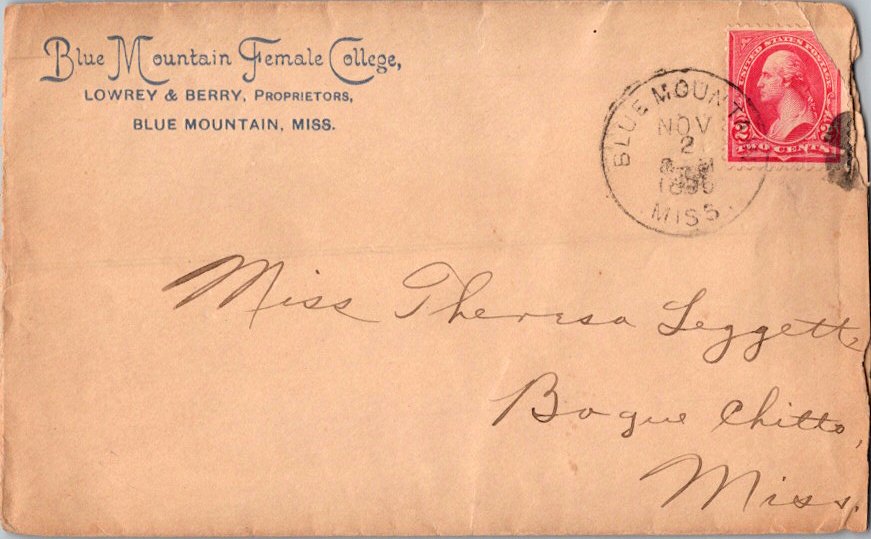 Blue Mountain Female College,
LOWREY & BERRY, PROPRIETORS,
BLUE MOUNTAIN, MISS.
UNITED STATES POSTAGE
2 2
TWO CENTS
BLUE MOUNT
NOV
2
MISS.
Miss Theresa Leggett
Bogue Chitto,
Miss.